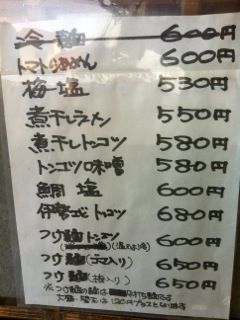 冷麺 600円
トマトらぁめん 600円
梅塩 530円
煮干しラメン 550円
煮干しトンコツ 580円
トンコツ味噌 580円
鯛塩 600円
伊勢エビトンコツ 680円
つけ麺トンコツ 600円
つけ麺(ゴマ入り) 650円
つけ麺(入り) 650円
※つけ麺の麺は平打ち麺です
大盛・は120円プラスとなります